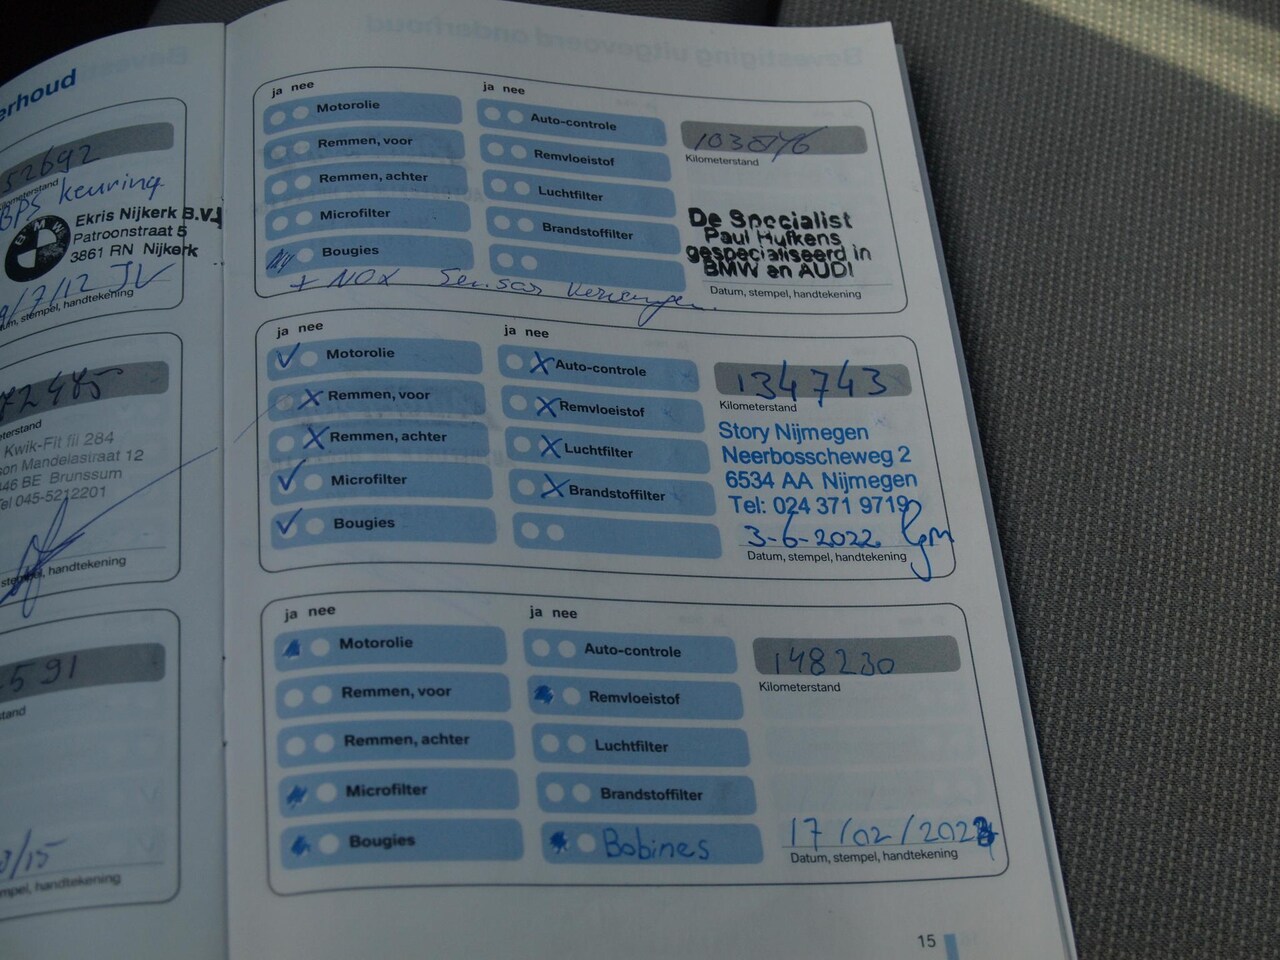 erhoud
52692
Kilometerstand
keuring
Ekris Nijkerk B.V.
Patroonstraat 5
3861 RN Nijkerk
/7/12 JV
stempel, handtekening
72485
Kwik-Fit fil 284
son Mandelastraat 12
46 BE Brunssum
Tel 045-5212201
stempel, handtekening
591
stand
/15
stempel, handtekening
ja nee
Motorolie
Remmen, voor
Remmen, achter
Microfilter
Bougies
ja nee
Auto-controle
Remvloeistof
Luchtfilter
Brandstoffilter
+ NOX Sensor
Kilometerstand
De Specialist
Paul Hufkens
gespecialiseerd in
BMW en AUDI
Datum, stempel, handtekening
ja nee
Motorolie
Remmen, voor
Remmen, achter
Microfilter
Bougies
ja nee
Auto-controle
Remvloeistof
Luchtfilter
Brandstoffilter
134743
Kilometerstand
Story Nijmegen
Neerbosscheweg 2
6534 AA Nijmegen
Tel: 024 371 9719
3-6-2022
Datum, stempel, handtekening
ja nee
Motorolie
Remmen, voor
Remmen, achter
Microfilter
Bougies
ja nee
Auto-controle
Remvloeistof
Luchtfilter
Brandstoffilter
Bobines
148230
Kilometerstand
17/02/202
Datum, stempel, handtekening
15